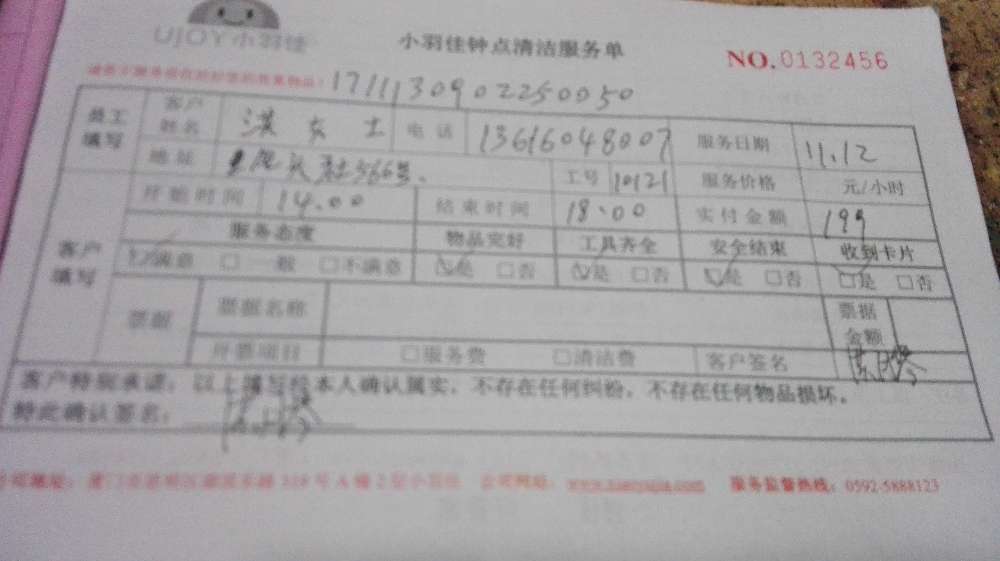 UJOY小羽佳
小羽佳钟点清洁服务单
NO.0132456
1711130902250050
员工填写 客户姓名 洪女士 电话 13616048007 服务日期 11.12
地址 工号 10121 服务价格 元/小时
客户填写 开始时间 14.00 结束时间 18.00 实付金额 199
服务态度 物品完好 工具齐全 安全结束 收到卡片
☑满意 □一般 □不满意 ☑是 □否 ☑是 □否 ☑是 □否 □是 □否
票据 票据名称 票据金额
开票项目 □服务费 □清洁费 客户签名
客户特别承诺：以上填写经本人确认属实，不存在任何纠纷，不存在任何物品损坏。
特此确认签名：
公司地址： 318号A幢2层小羽佳 公司网站： 服务监督热线：0592-5888123